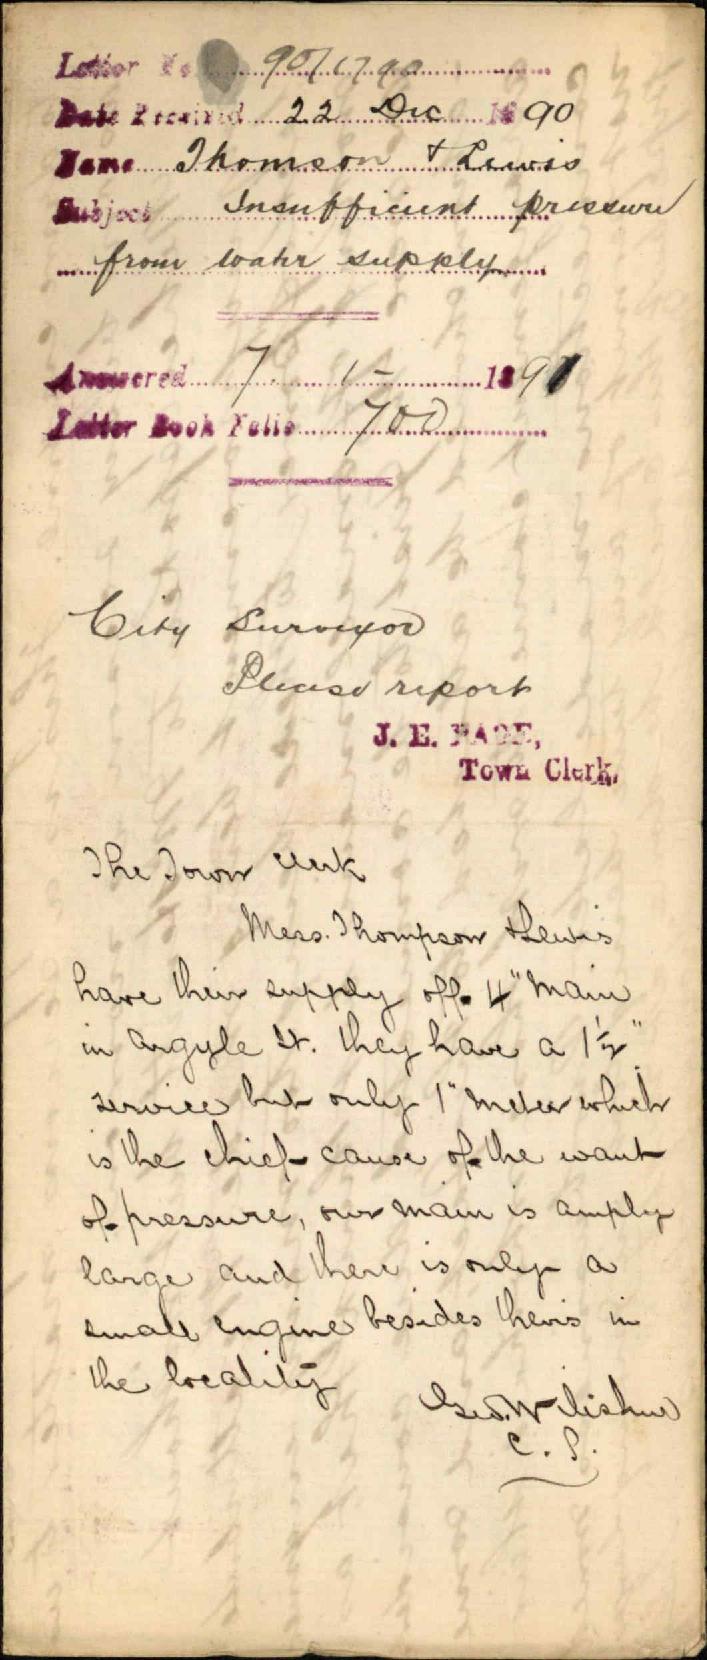 Letter No. 90/1790
Date Received 22 Dec 1890
Name Thomson & Lewis
Subject Insufficient pressure
from water supply
Answered 7 1 1891
Letter Book Folio 700
City Surveyor
Please report
J. E. PAGE,
Town Clerk.
The Town Clerk
Mess. Thompson & Lewis
have their supply off 4" Main
in Argyle St. they have a 1½"
service but only 1" meter which
is the chief cause of the want
of pressure, our main is amply
large and there is only a
small engine besides theirs in
the locality
Geo. W
C. S.